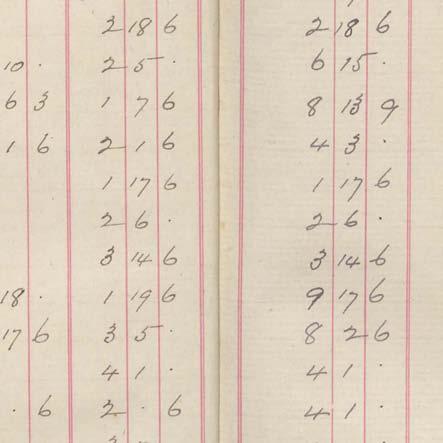 2 18 6 2 18 6
10 . 2 5 . 6 15 .
6 3 1 7 6 8 13 9
1 6 2 1 6 4 3 .
1 17 6 1 17 6
2 6 . 2 6 .
3 14 6 3 14 6
18 . 1 19 6 9 17 6
17 6 3 5 . 8 2 6
4 1 . 4 1 .
. 6 2 . 6 4 1 .